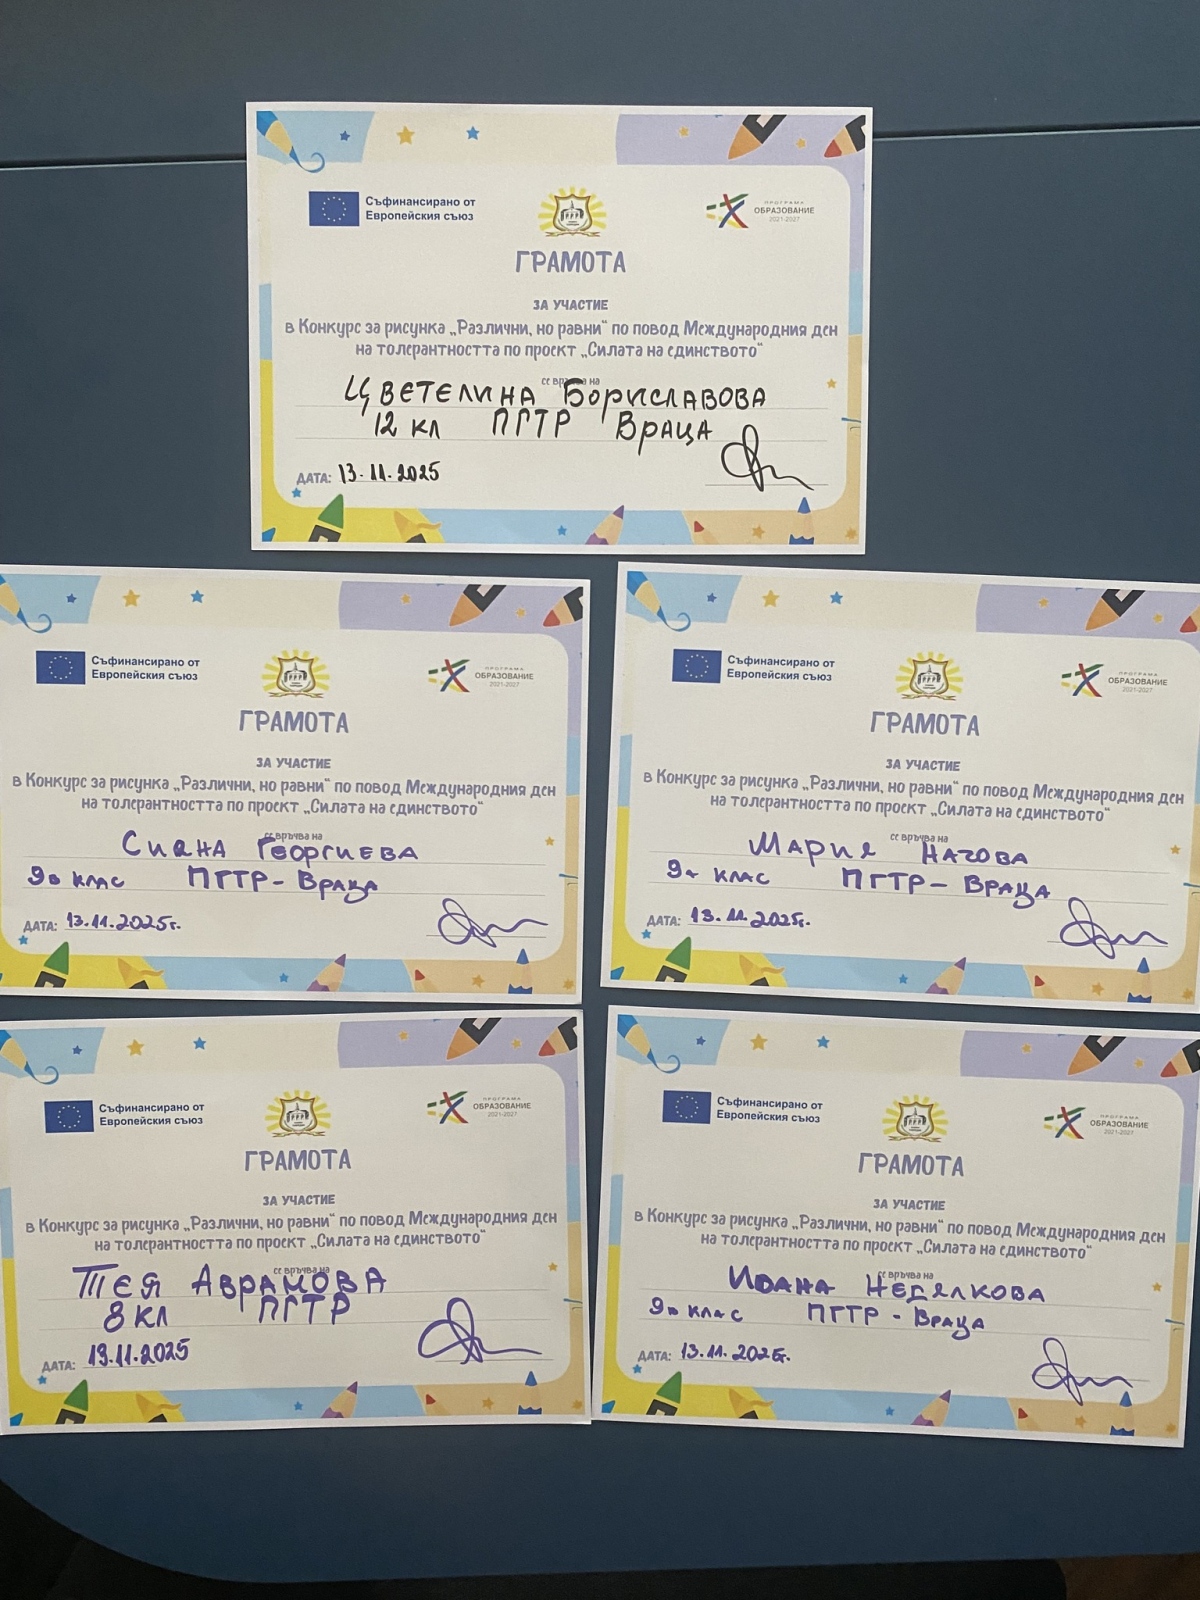 Съфинансирано от
Европейския съюз
ПРОГРАМА
ОБРАЗОВАНИЕ
2021-2027
ГРАМОТА
ЗА УЧАСТИЕ
в Конкурс за рисунка „Различни, но равни“ по повод Международния ден
на толерантността по проект „Силата на единството“
се връчва на
Цветелина Бориславова
12 кл ПГТР Враца
ДАТА: 13.11.2025
Съфинансирано от
Европейския съюз
ПРОГРАМА
ОБРАЗОВАНИЕ
2021-2027
ГРАМОТА
ЗА УЧАСТИЕ
в Конкурс за рисунка „Различни, но равни“ по повод Международния ден
на толерантността по проект „Силата на единството“
се връчва на
Сиана Георгиева
9в клас ПГТР - Враца
ДАТА: 13.11.2025г.
Съфинансирано от
Европейския съюз
ПРОГРАМА
ОБРАЗОВАНИЕ
2021-2027
ГРАМОТА
ЗА УЧАСТИЕ
в Конкурс за рисунка „Различни, но равни“ по повод Международния ден
на толерантността по проект „Силата на единството“
се връчва на
Мария Начова
клас ПГТР - Враца
ДАТА: 13.11.2025г.
Съфинансирано от
Европейския съюз
ПРОГРАМА
ОБРАЗОВАНИЕ
2021-2027
ГРАМОТА
ЗА УЧАСТИЕ
в Конкурс за рисунка „Различни, но равни“ по повод Международния ден
на толерантността по проект „Силата на единството“
се връчва на
Тея Аврамова
8 кл ПГТР
ДАТА: 13.11.2025
Съфинансирано от
Европейския съюз
ПРОГРАМА
ОБРАЗОВАНИЕ
2021-2027
ГРАМОТА
ЗА УЧАСТИЕ
в Конкурс за рисунка „Различни, но равни“ по повод Международния ден
на толерантността по проект „Силата на единството“
се връчва на
Ивана Неделкова
клас ПГТР - Враца
ДАТА: 13.11.2025г.